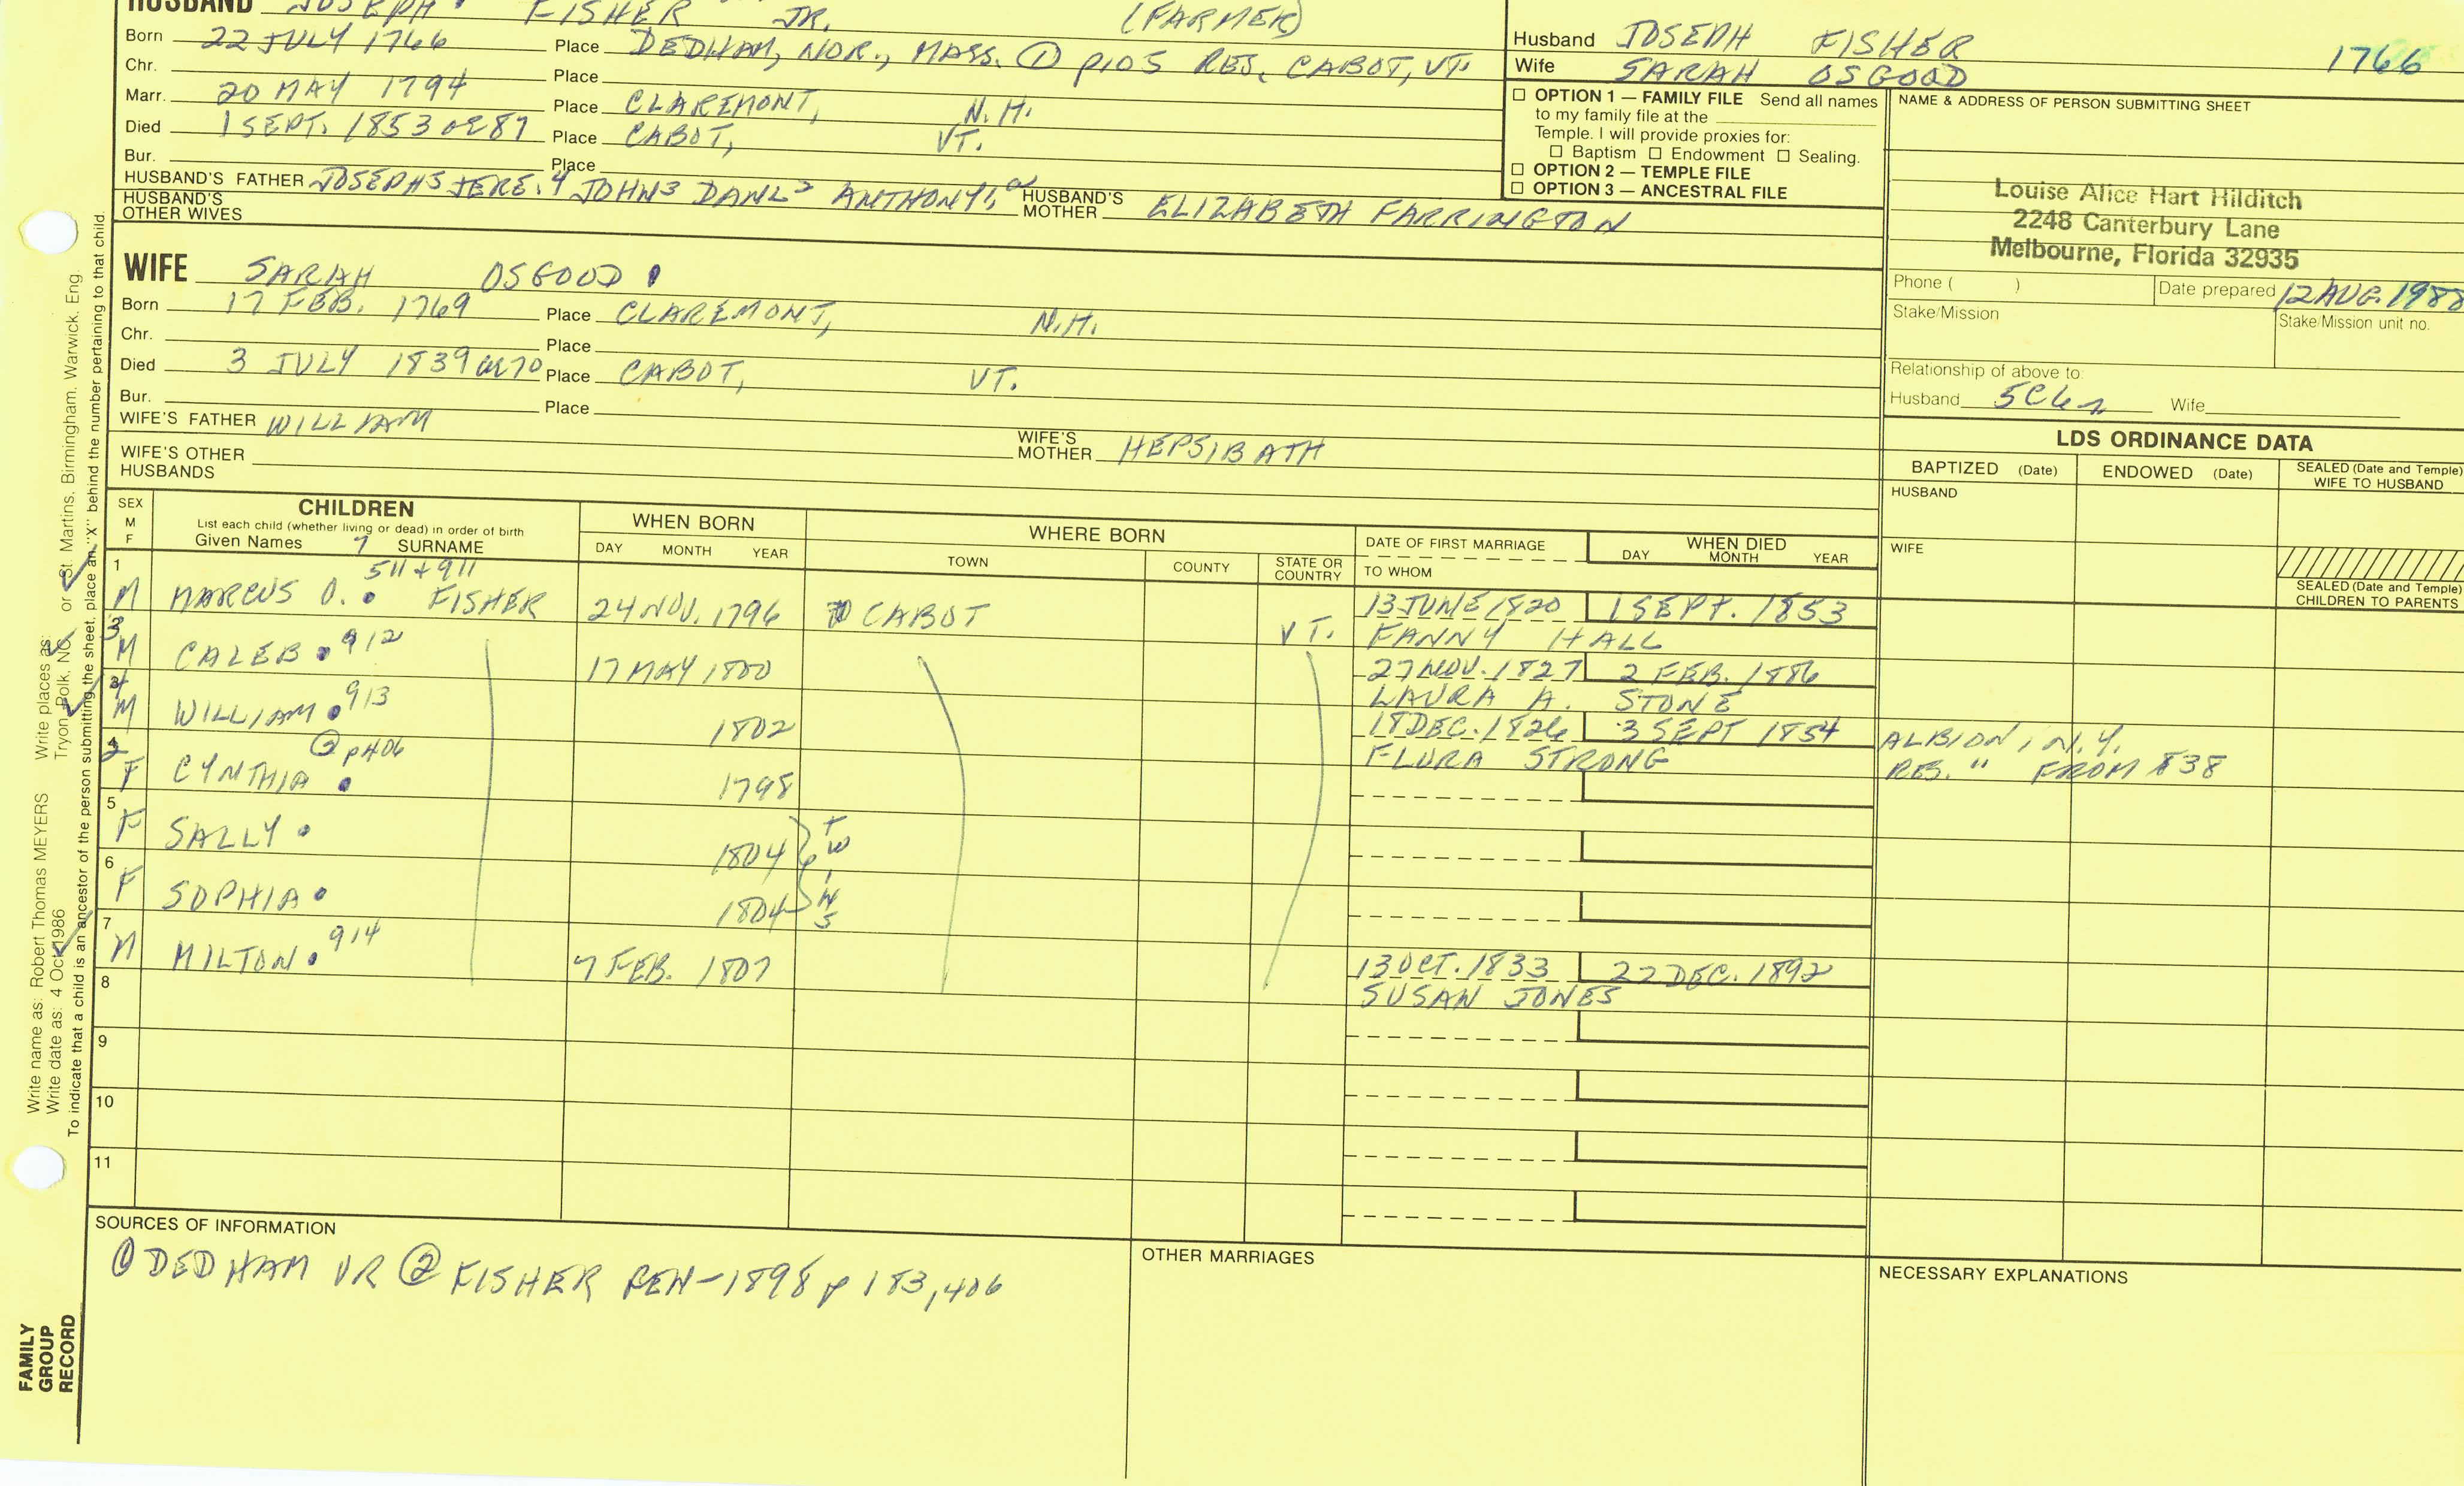 HUSBAND JOSEPH FISHER JR. (FARMER)
Born 22 JULY 1766 Place DEDHAM, NOR., MASS. ① p105 RES. CABOT, VT.
Chr. Place
Marr. 20 MAY 1794 Place CLAREMONT, N.H.
Died 1 SEPT. 1853 ae 87 Place CABOT, VT.
Bur. Place
HUSBAND'S FATHER JOSEPH5 JERE.4 JOHN3 DANL2 ANTHONY1, HUSBAND'S MOTHER ELIZABETH FARRINGTON
HUSBAND'S OTHER WIVES
WIFE SARAH OSGOOD
Born 17 FEB. 1769 Place CLAREMONT, N.H.
Chr. Place
Died 3 JULY 1839 ae 70 Place CABOT, VT.
Bur. Place
WIFE'S FATHER WILLIAM WIFE'S MOTHER HEPSIBATH
WIFE'S OTHER HUSBANDS
Husband JOSEPH FISHER 1766
Wife SARAH OSGOOD
☐ OPTION 1 — FAMILY FILE Send all names
to my family file at the
Temple. I will provide proxies for:
☐ Baptism ☐ Endowment ☐ Sealing.
☐ OPTION 2 — TEMPLE FILE
☐ OPTION 3 — ANCESTRAL FILE
NAME & ADDRESS OF PERSON SUBMITTING SHEET
Louise Alice Hart Hilditch
2248 Canterbury Lane
Melbourne, Florida 32935
Phone ( ) Date prepared 12 AUG. 1988
Stake/Mission Stake/Mission unit no.
Relationship of above to:
Husband 5C6r Wife
LDS ORDINANCE DATA
BAPTIZED (Date) ENDOWED (Date) SEALED (Date and Temple) WIFE TO HUSBAND
HUSBAND
WIFE
SEALED (Date and Temple)
CHILDREN TO PARENTS
SEX M F CHILDREN WHEN BORN WHERE BORN DATE OF FIRST MARRIAGE WHEN DIED
List each child (whether living or dead) in order of birth
Given Names 7 SURNAME DAY MONTH YEAR TOWN COUNTY STATE OR COUNTRY TO WHOM DAY MONTH YEAR
1 M MARCUS O. 511+911 FISHER 24 NOV. 1796 CABOT VT. 13 JUNE 1820 1 SEPT. 1853
FANNY HALL
3 M CALEB 912 17 MAY 1800 27 NOV. 1827 2 FEB. 1886
LAURA A. STONE
4 M WILLIAM 913 1802 18 DEC. 1826 3 SEPT 1854 ALBION, N.Y.
FLORA STRONG RES. " FROM 838
2 F CYNTHIA ② p406 1798
5 F SALLY 1804 TWINS
6 F SOPHIA 1804
7 M MILTON 914 7 FEB. 1807 13 OCT. 1833 22 DEC. 1892
SUSAN JONES
8
9
10
11
SOURCES OF INFORMATION
① DEDHAM VR ② FISHER GEN-1898 p 183, 406
OTHER MARRIAGES
NECESSARY EXPLANATIONS
Write name as: Robert Thomas MEYERS Write places as: Tryon, Polk, NC or St. Martins, Birmingham, Warwick, Eng
Write date as: 4 Oct 1986
To indicate that a child is an ancestor of the person submitting the sheet, place an "X" behind the number pertaining to that child.
FAMILY
GROUP
RECORD